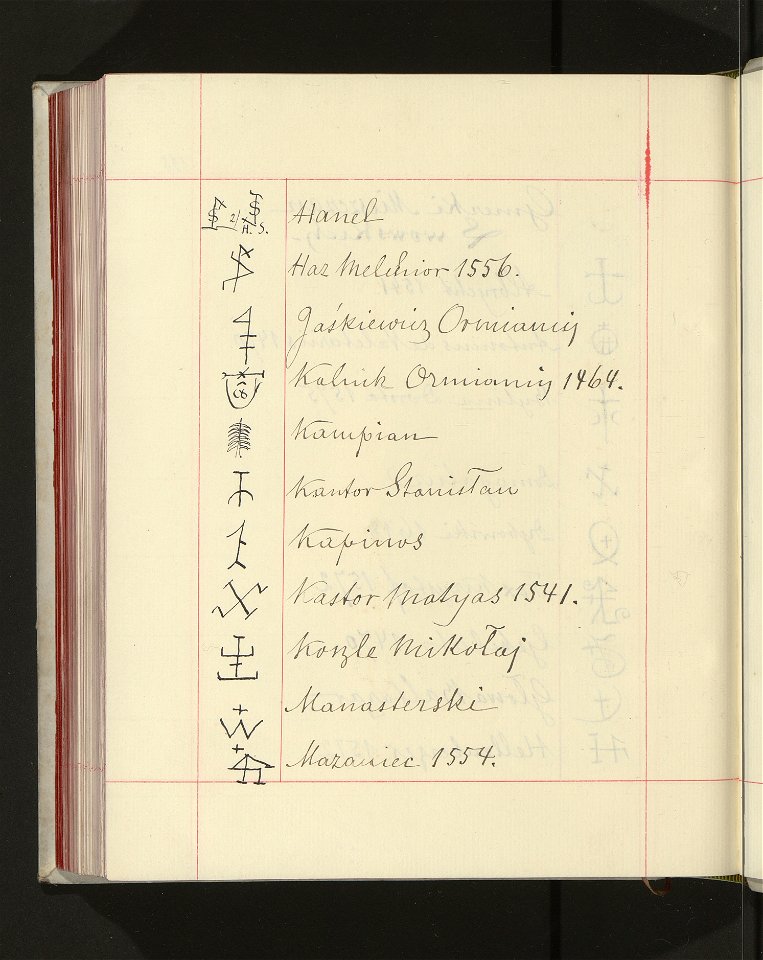 2/ H. S. Hanel
Haz Melchior 1556.
Jaśkiewicz Ormianin
Kalnik Ormianin 1464.
Kampian
Kantor Stanisław
Kapinos
Kastor Matyas 1541.
Koszle Mikołaj
Manasterski
Mazaniec 1554.